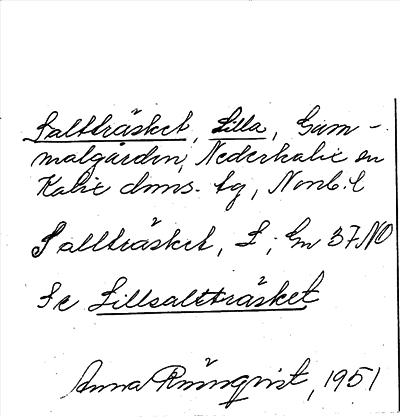 Saltträsket, Lilla, Gam-
malgården, Nederkalix en
Kalix dms. tg, Norrb. l
Saltträsket, L; Gn 37 NO
Se Lillsaltträsket
Anna Rönnqvist, 1951